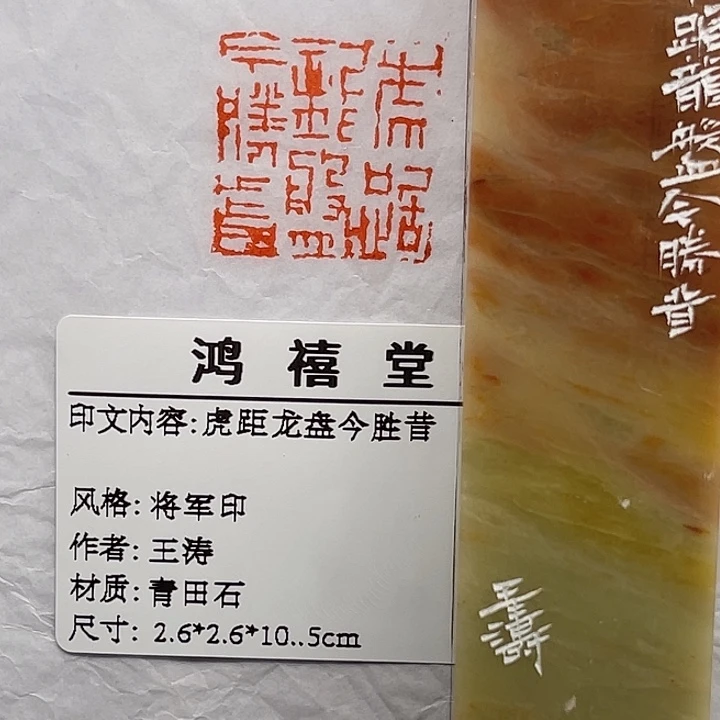 虎踞龍盤今勝昔
鸿禧堂
印文内容:虎距龙盘今胜昔
风格:将军印
作者:王涛
材质:青田石
尺寸:2.6*2.6*10..5cm
踞龍盤今勝昔
王濤